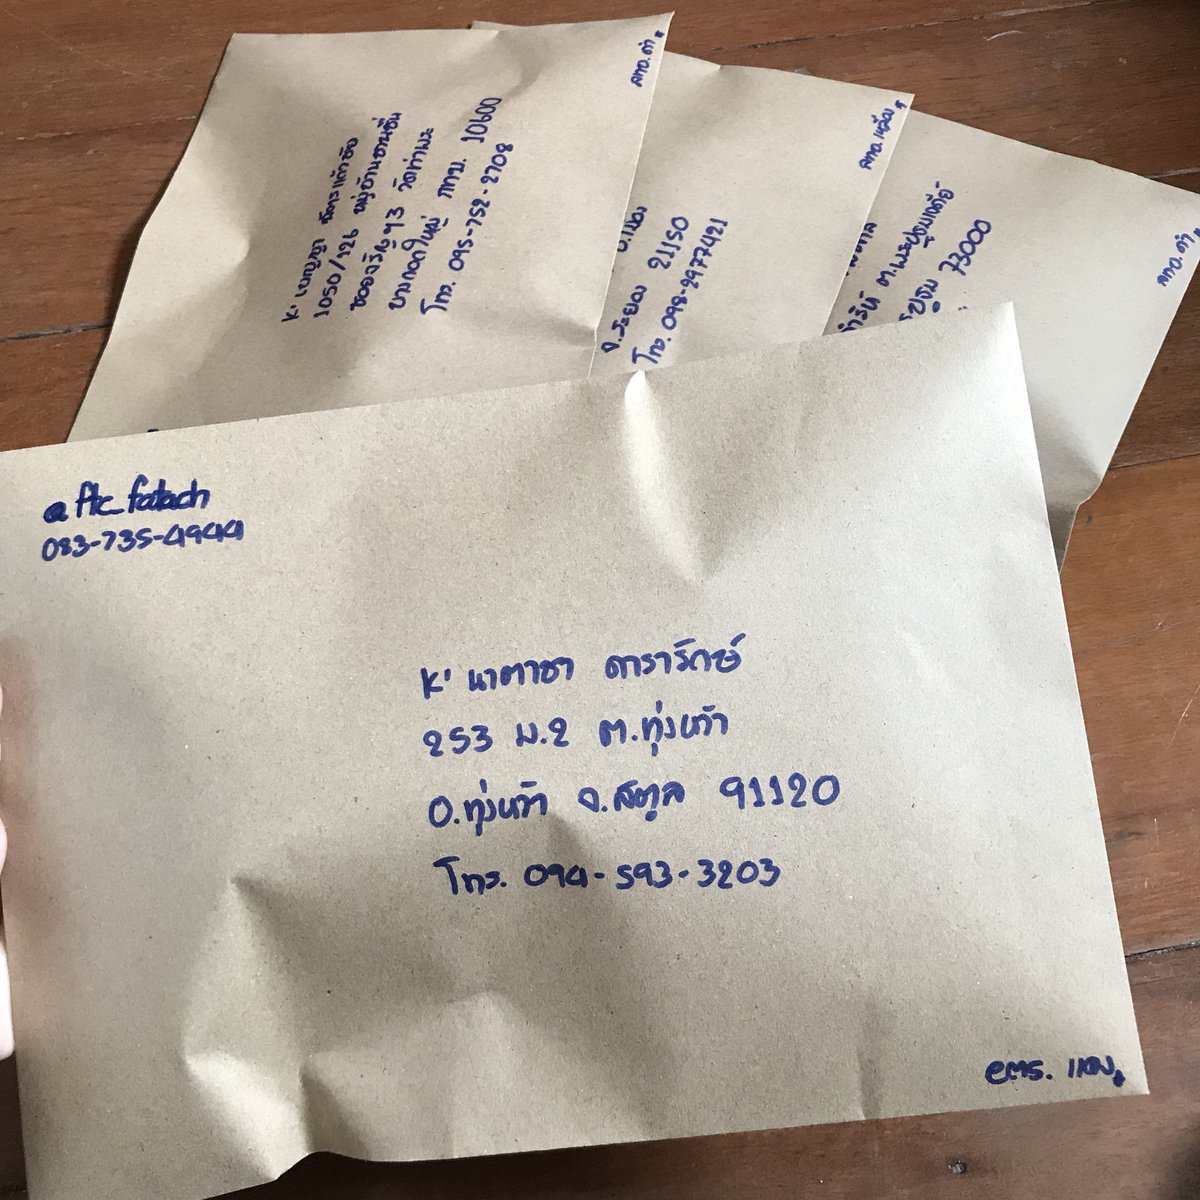 K' เบญญา
1050/126 หมู่บ้านชานชื่น
ซอยจรัญฯ13 วัดท่าพระ
บางกอกใหญ่ กทม. 10600
โทร. 095-752-2708
ลทบ.ดำ
อ.เมือง
จ.ระยอง 21150
โทร. 098-2977421
ลทบ.เหลือง
ต.พระปฐมเจดีย์
73000
ลทบ.ดำ
@ftc_fatach
083-735-4944
K' นาตาชา ดารารักษ์
253 ม.2 ต.ทุ่งหว้า
อ.ทุ่งหว้า จ.สตูล 91120
โทร. 094-593-3203
ems. แดง